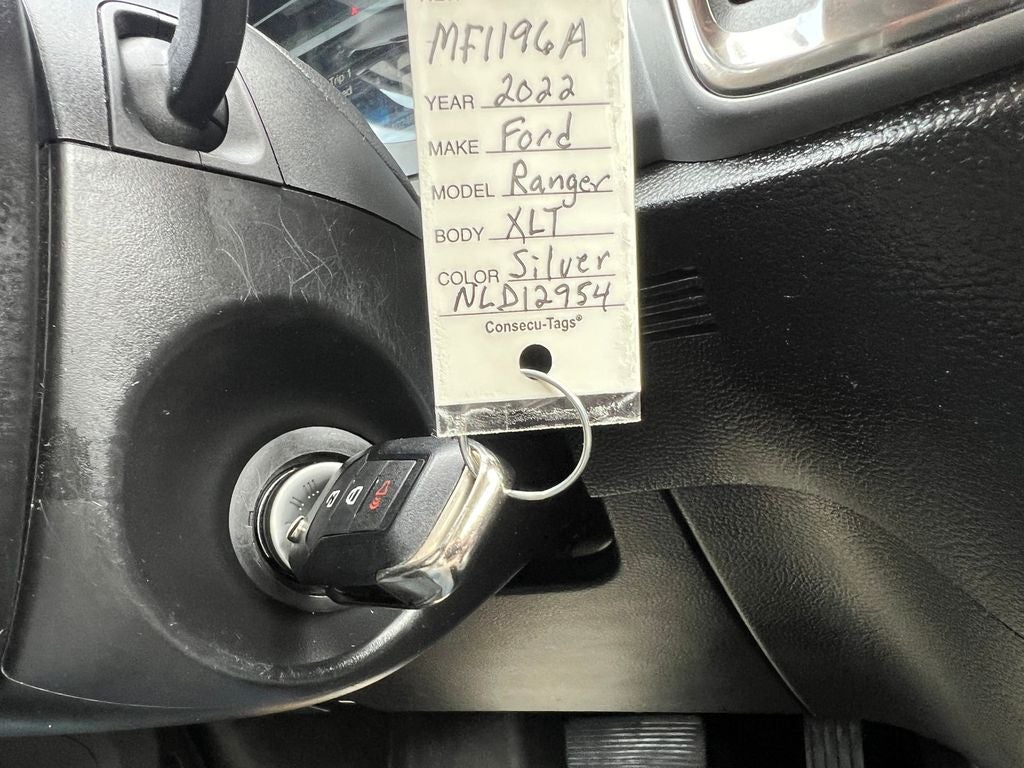 Trip 1
MF1196A
YEAR 2022
MAKE Ford
MODEL Ranger
BODY XLT
COLOR Silver
NLD12954
Consecu-Tags®